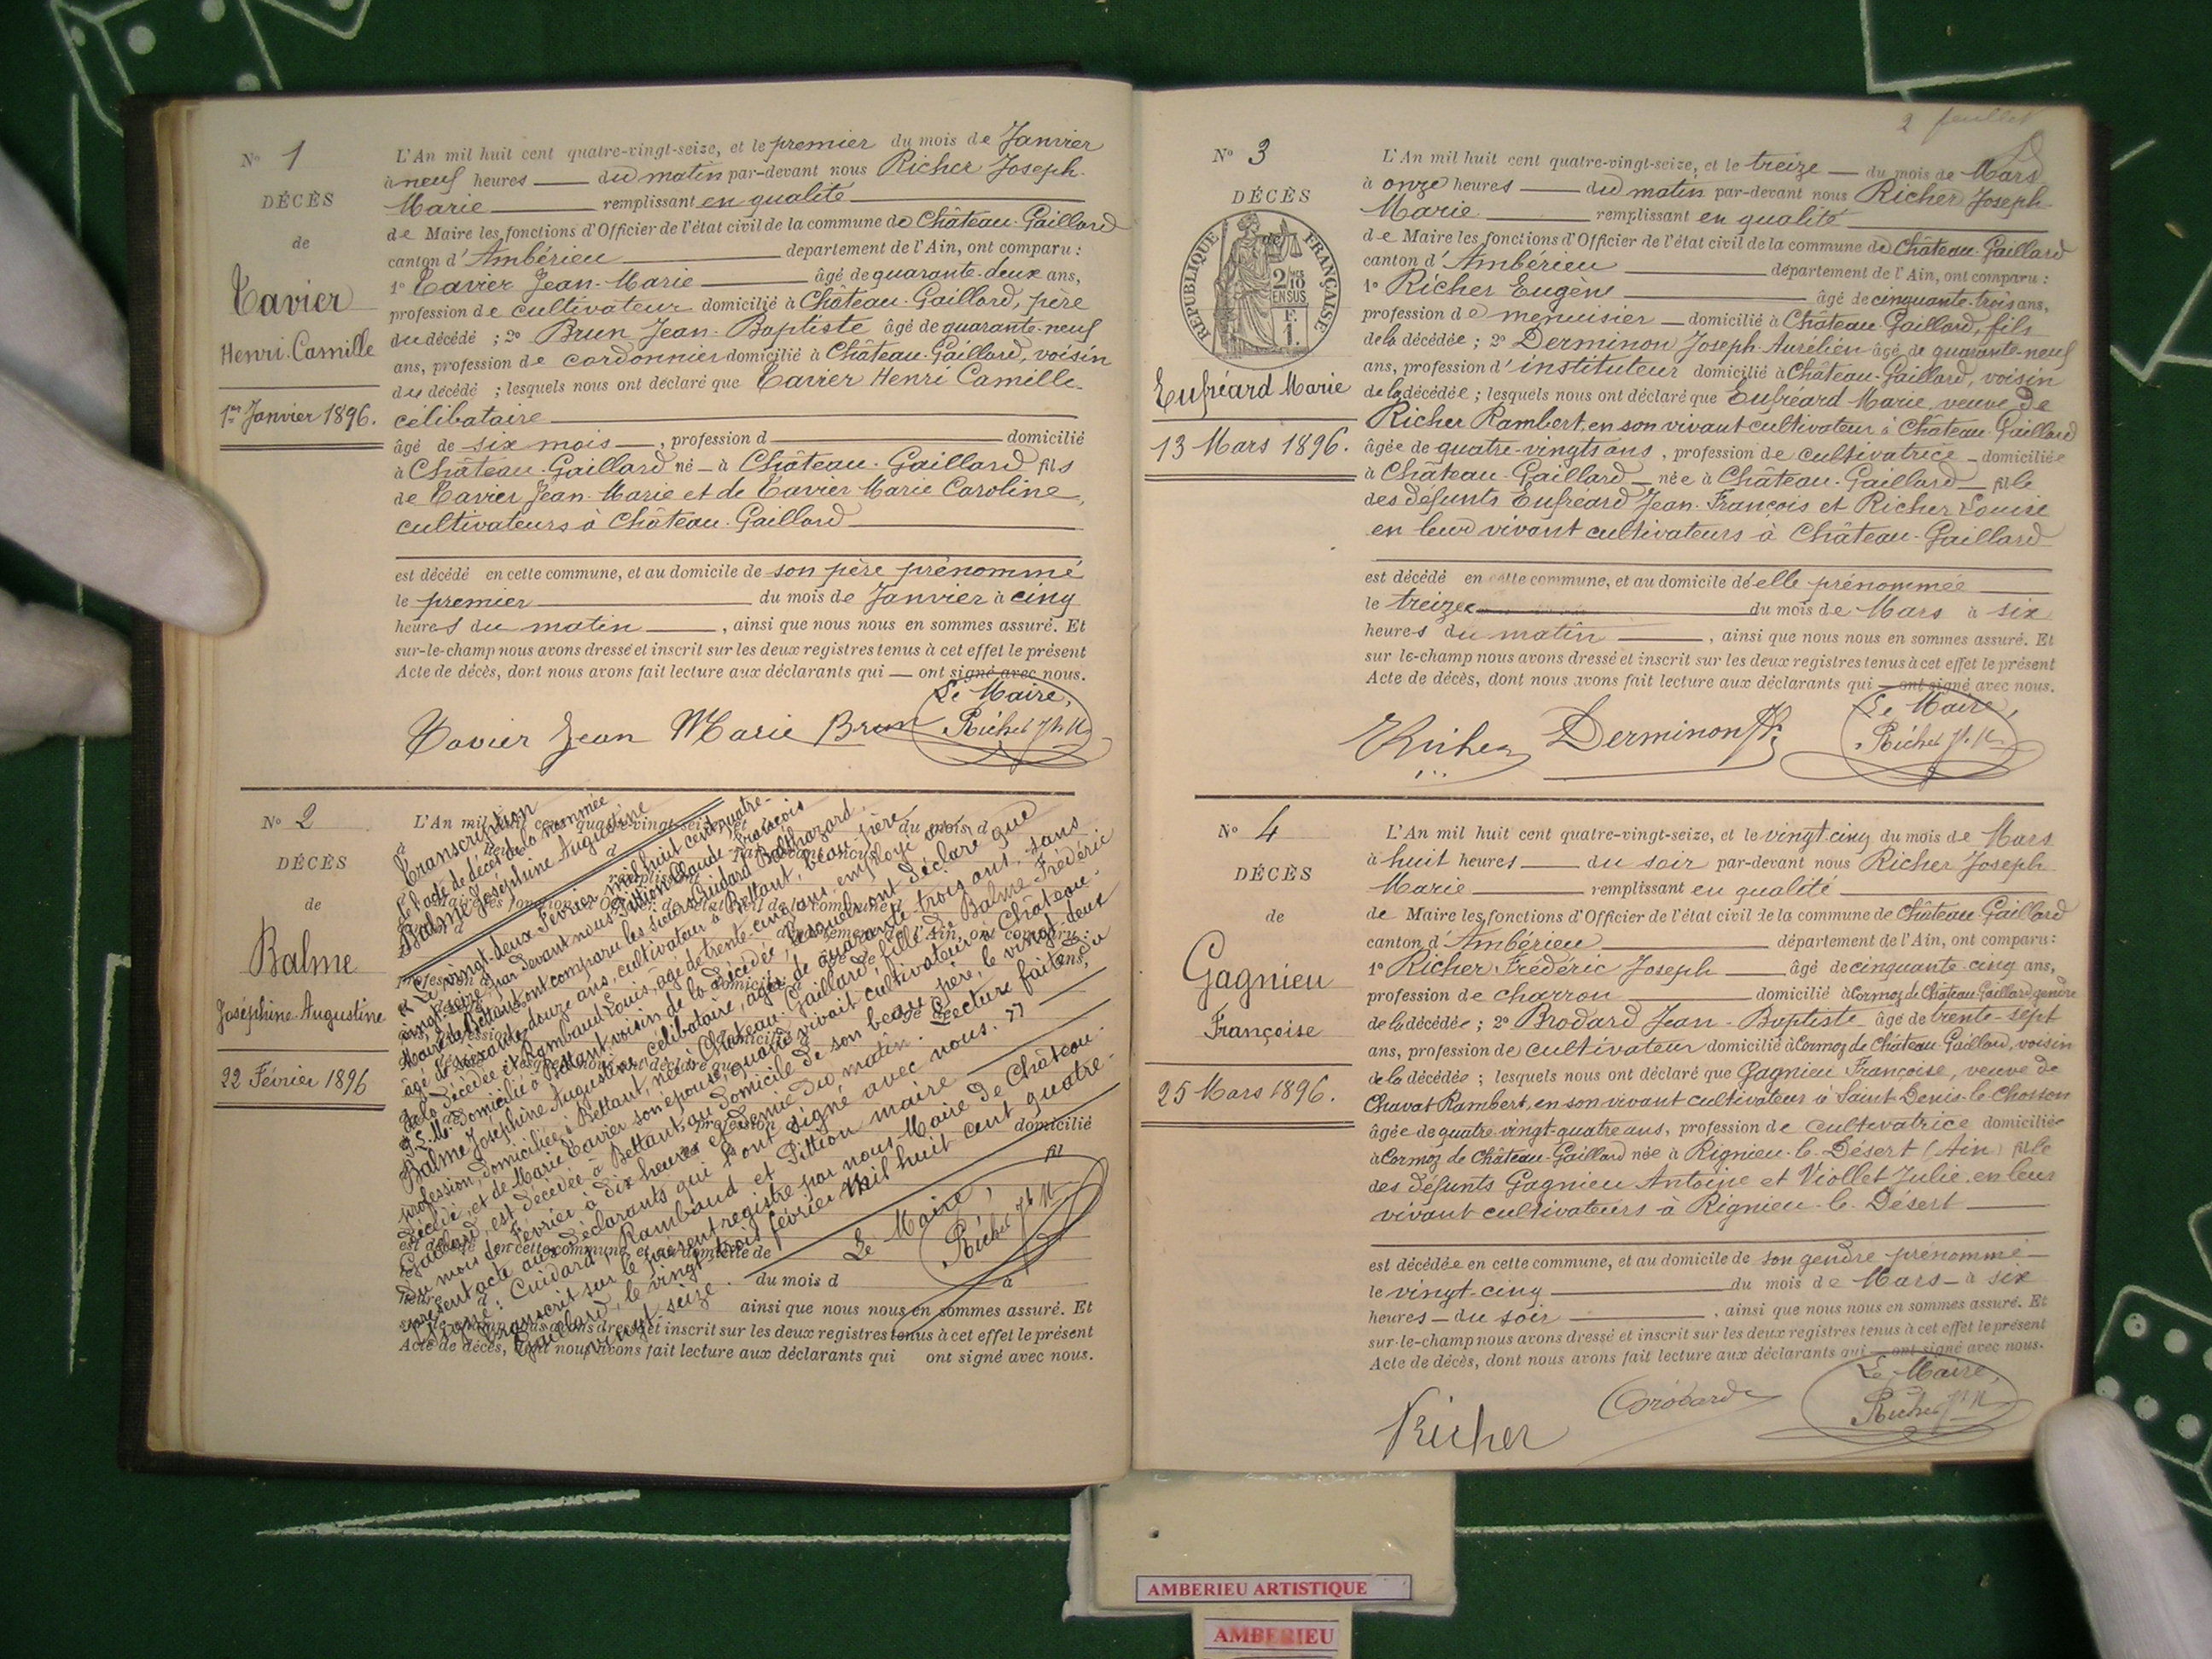 N° 1
DÉCÈS
de
Tavier
Henri Camille
1er Janvier 1896.
L'An mil huit cent quatre-vingt-seize, et le premier du mois de Janvier
à neuf heures du matin par-devant nous Richer Joseph
Marie remplissant en qualité
de Maire les fonctions d'Officier de l'état civil de la commune de Château-Gaillard
canton d'Ambérieu département de l'Ain, ont comparu :
1° Tavier Jean-Marie âgé de quarante-deux ans,
profession de cultivateur domicilié à Château-Gaillard, père
du décédé ; 2° Brun Jean-Baptiste âgé de quarante-neuf
ans, profession de cordonnier domicilié à Château-Gaillard, voisin
du décédé ; lesquels nous ont déclaré que Tavier Henri Camille
célibataire
âgé de six mois, profession d domicilié
à Château-Gaillard né à Château-Gaillard fils
de Tavier Jean-Marie et de Tavier Marie Caroline,
cultivateurs à Château-Gaillard
est décédé en cette commune, et au domicile de son père prénommé
le premier du mois de Janvier à cinq
heures du matin, ainsi que nous nous en sommes assuré. Et
sur-le-champ nous avons dressé et inscrit sur les deux registres tenus à cet effet le présent
Acte de décès, dont nous avons fait lecture aux déclarants qui ont signé avec nous.
Le Maire,
Tavier Jean Marie Brun Richer Jh M
N° 2
DÉCÈS
de
Balme
Joséphine-Augustine
22 Février 1896
Transcription
de l'acte de décès de la nommée
Balme Joséphine Augustine
Le vingt-deux Février mil huit cent quatre-
vingt-seize, par devant nous Pittion Claude François
Maire de Bettant ont comparu les sieurs Guidard Balthazard
âgé de soixante-douze ans, cultivateur à Bettant, beau-père
de la décédée et Rambaud Louis, âgé de trente-cinq ans, employé au
P.L.M. domicilié à Bettant, voisin de la décédée, lesquels ont déclaré que
Balme Joséphine Augustine, célibataire, âgée de quarante-trois ans, sans
profession, domiciliée à Bettant, née à Château-Gaillard, fille de Balme Frédéric
décédé, et de Marie Tavier son épouse, quand vivait cultivateur à Château-
Gaillard, est décédée à Bettant, au domicile de son beau-père, le vingt-deux
du mois de Février à dix heures et demie du matin. Lecture faite du
présent acte aux déclarants qui l'ont signé avec nous. »
Signé : Guidard, Rambaud et Pittion maire
Transcrit sur le présent registre par nous Maire de Château-
Gaillard, le vingt-trois février mil huit cent quatre-
vingt seize.
Le Maire,
Richer Jh M
domicilié
du mois d à
ainsi que nous nous en sommes assuré. Et
dressé et inscrit sur les deux registres tenus à cet effet le présent
Acte de décès, dont nous avons fait lecture aux déclarants qui ont signé avec nous.
2 feuillet
N° 3
DÉCÈS
RÉPUBLIQUE FRANÇAISE
2/10
EN SUS
F.
1.
Eufréard Marie
13 Mars 1896.
L'An mil huit cent quatre-vingt-seize, et le treize du mois de Mars
à onze heures du matin par-devant nous Richer Joseph
Marie remplissant en qualité
de Maire les fonctions d'Officier de l'état civil de la commune de Château-Gaillard
canton d'Ambérieu département de l'Ain, ont comparu :
1° Richer Eugène âgé de cinquante-trois ans,
profession de menuisier domicilié à Château-Gaillard, fils
de la décédée ; 2° Derminon Joseph-Aurélien âgé de quarante-neuf
ans, profession d'instituteur domicilié à Château-Gaillard, voisin
de la décédée ; lesquels nous ont déclaré que Eufréard Marie, veuve de
Richer Rambert, en son vivant cultivateur à Château-Gaillard
âgée de quatre-vingts ans, profession de cultivatrice domiciliée
à Château-Gaillard née à Château-Gaillard fille
des défunts Eufréard Jean-François et Richer Louise
en leur vivant cultivateurs à Château-Gaillard
est décédé en cette commune, et au domicile d'elle prénommée
le treize du mois de Mars à six
heures du matin, ainsi que nous nous en sommes assuré. Et
sur le-champ nous avons dressé et inscrit sur les deux registres tenus à cet effet le présent
Acte de décès, dont nous avons fait lecture aux déclarants qui ont signé avec nous.
Le Maire,
ERicher Derminon Jh Richer Jh M
N° 4
DÉCÈS
de
Gagnieu
Françoise
25 Mars 1896.
L'An mil huit cent quatre-vingt-seize, et le vingt-cinq du mois de Mars
à huit heures du soir par-devant nous Richer Joseph
Marie remplissant en qualité
de Maire les fonctions d'Officier de l'état civil de la commune de Château-Gaillard
canton d'Ambérieu département de l'Ain, ont comparu :
1° Richer Frédéric Joseph âgé de cinquante-cinq ans,
profession de charron domicilié à Cormoz de Château-Gaillard, gendre
de la décédée ; 2° Brodard Jean-Baptiste âgé de trente-sept
ans, profession de cultivateur domicilié à Cormoz de Château-Gaillard, voisin
de la décédée ; lesquels nous ont déclaré que Gagnieu Françoise, veuve de
Chavat Rambert, en son vivant cultivateur à Saint-Denis-le-Chosson
âgée de quatre-vingt-quatre ans, profession de cultivatrice domiciliée
à Cormoz de Château-Gaillard née à Rignieu-le-Désert (Ain) fille
des défunts Gagnieu Antoine et Viollet Julie, en leur
vivant cultivateurs à Rignieu-le-Désert
est décédée en cette commune, et au domicile de son gendre prénommé
le vingt-cinq du mois de Mars à six
heures du soir, ainsi que nous nous en sommes assuré. Et
sur-le-champ nous avons dressé et inscrit sur les deux registres tenus à cet effet le présent
Acte de décès, dont nous avons fait lecture aux déclarants qui ont signé avec nous.
Le Maire,
Richer Brodard Richer Jh M
AMBERIEU ARTISTIQUE
AMBERIEU